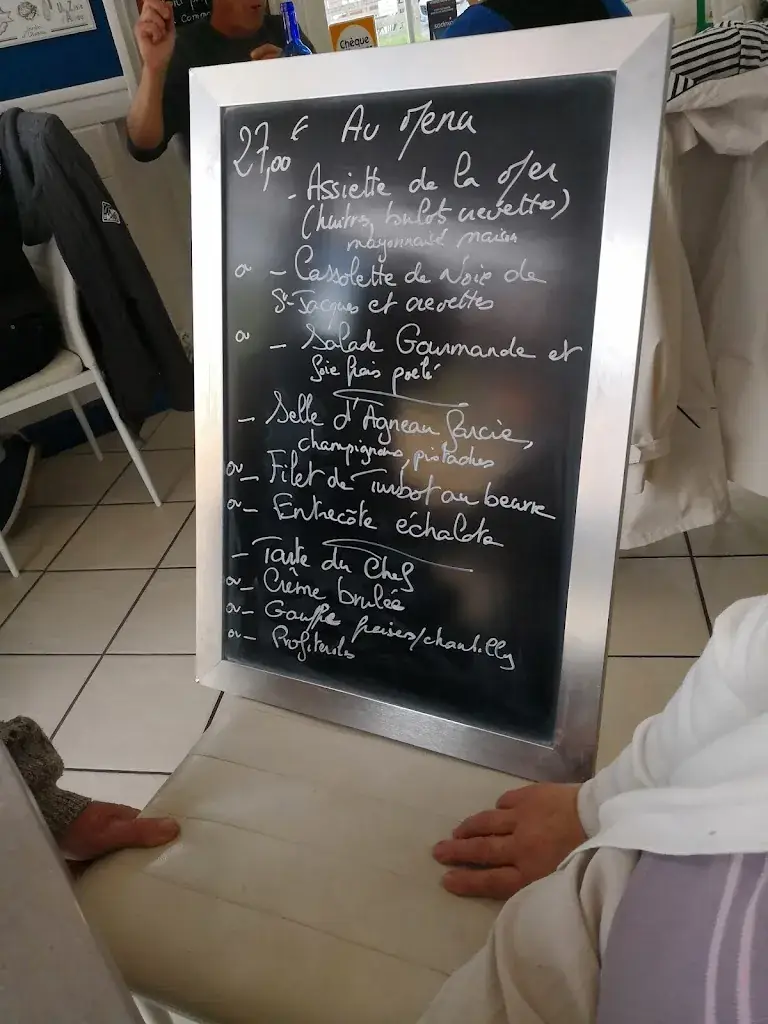 27,00 € Au Menu
- Assiette de la Mer
(huitres, bulots crevettes)
mayonnaise maison
ou - Cassolette de Noix de
St-Jacques et crevettes
ou - Salade Gourmande et
foie frais poelé
- Selle d'Agneau farcie,
champignons, pistaches
ou - Filet de Turbot au beurre
ou - Entrecôte échalote
- Tarte du Chef
ou - Crème brulée
ou - Gauffre fraises/chantilly
ou - Profiterols
Chèque
sodexo